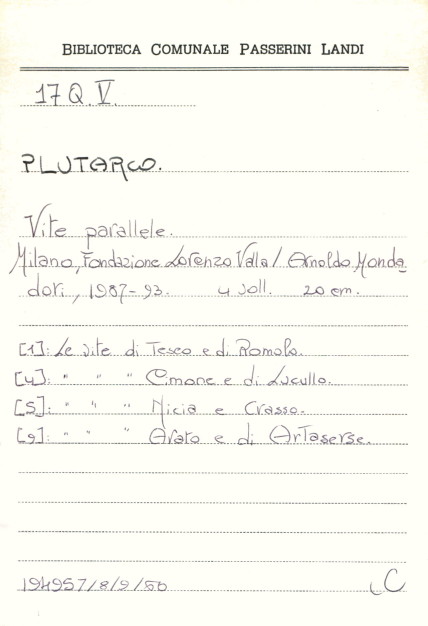 BIBLIOTECA COMUNALE PASSERINI LANDI
17 Q. V.
PLUTARCO.
Vite parallele.
Milano, Fondazione Lorenzo Valla / Arnoldo Monda
dori, 1987-93. 4 voll. 20 cm.
[1]: Le vite di Teseo e di Romolo.
[4]: " " " Cimone e di Lucullo.
[5]: " " " Nicia e Crasso.
[9]: " " " Arato e di Artaserse.
194957/8/9/60
C